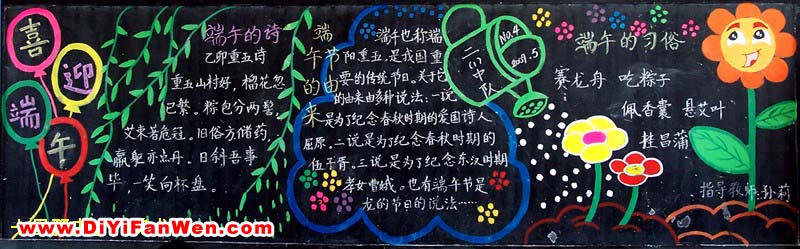 喜迎端午
端午的诗
乙卯重五诗
重五山村好，榴花忽
已繁。粽包分两髻，
艾束著危冠。旧俗方储药，
羸躯亦点丹。日斜吾事
毕，一笑向杯盘。
端午节的由来
端午也称端
阳重五，是我国重
要的传统节日。关于它
的由来由多种说法：一说
是为了纪念春秋时期的爱国诗人
屈原。二说是为了纪念春秋时期的
伍子胥。三说是为了纪念东汉时期
孝女曹娥。也有端午节是
龙的节日的说法……
NO.4
2009.5
二(1)中队
端午的习俗
赛龙舟 吃粽子
佩香囊 悬艾叶
挂昌蒲
指导教师:孙莉
www.DiYiFanWen.com